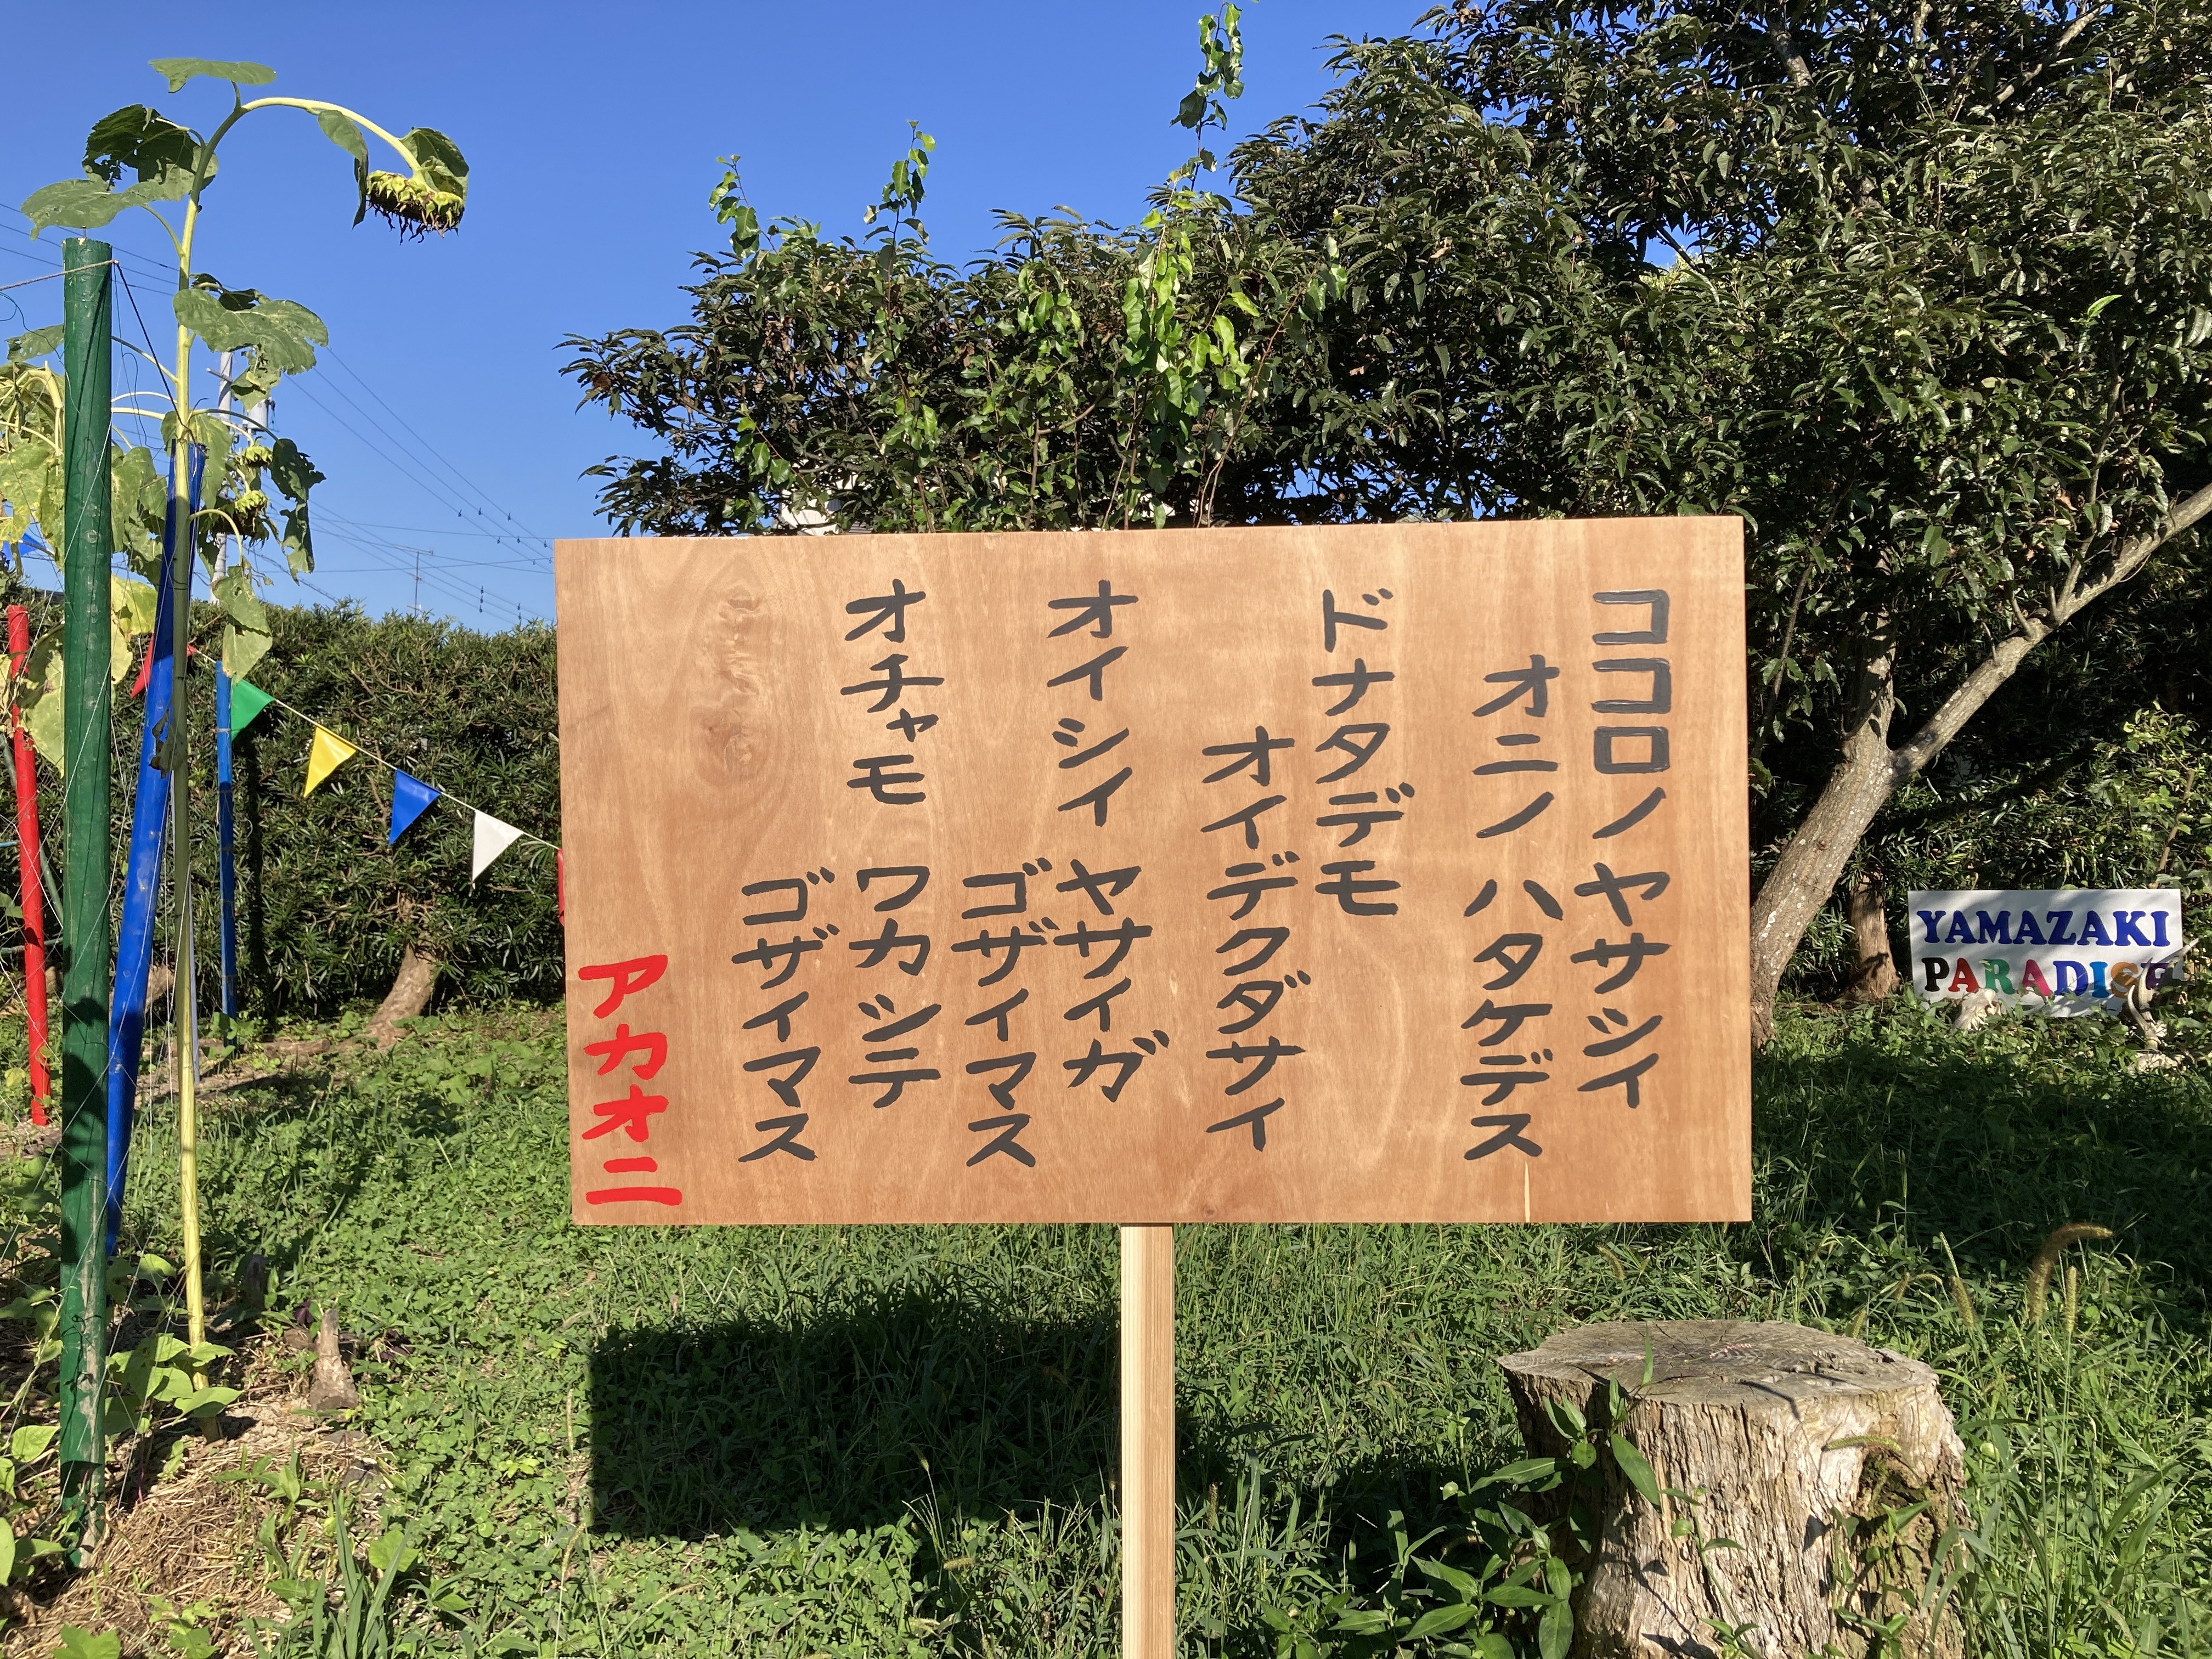 ココロノ ヤサシイ
オニノ ハタケデス
ドナタデモ
オイデクダサイ
オイシイ ヤサイガ
ゴザイマス
オチャモ ワカシテ
ゴザイマス
アカオニ
YAMAZAKI
PARADISE